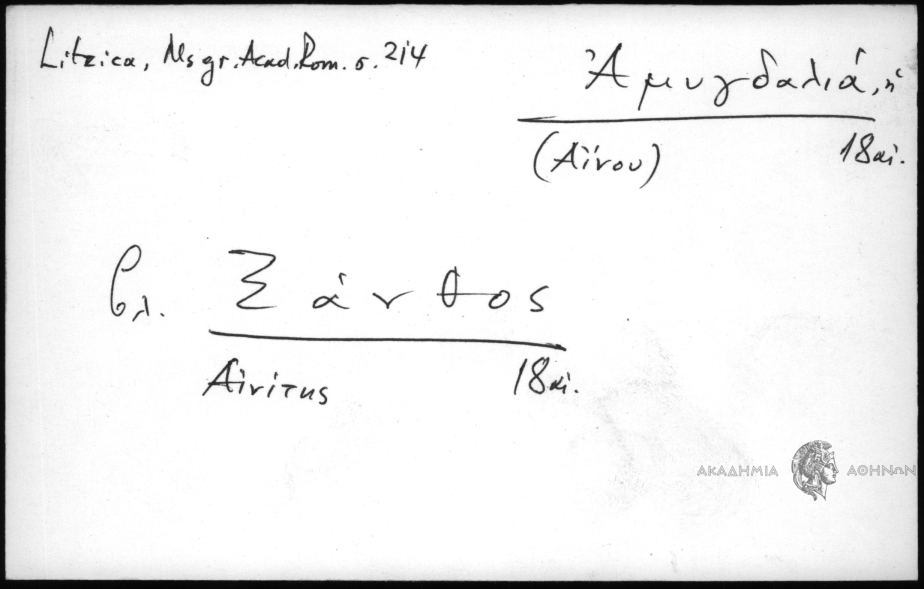 Litzica, Ms gr. Acad. Rom. σ. 214
Ἀμυγδαλιά, ἡ
(Αἴνου) 18 αἰ.
βλ. Ξάνθος
Αἰνίτης 18 αἰ.
ΑΚΑΔΗΜΙΑ ΑΘΗΝΩΝ